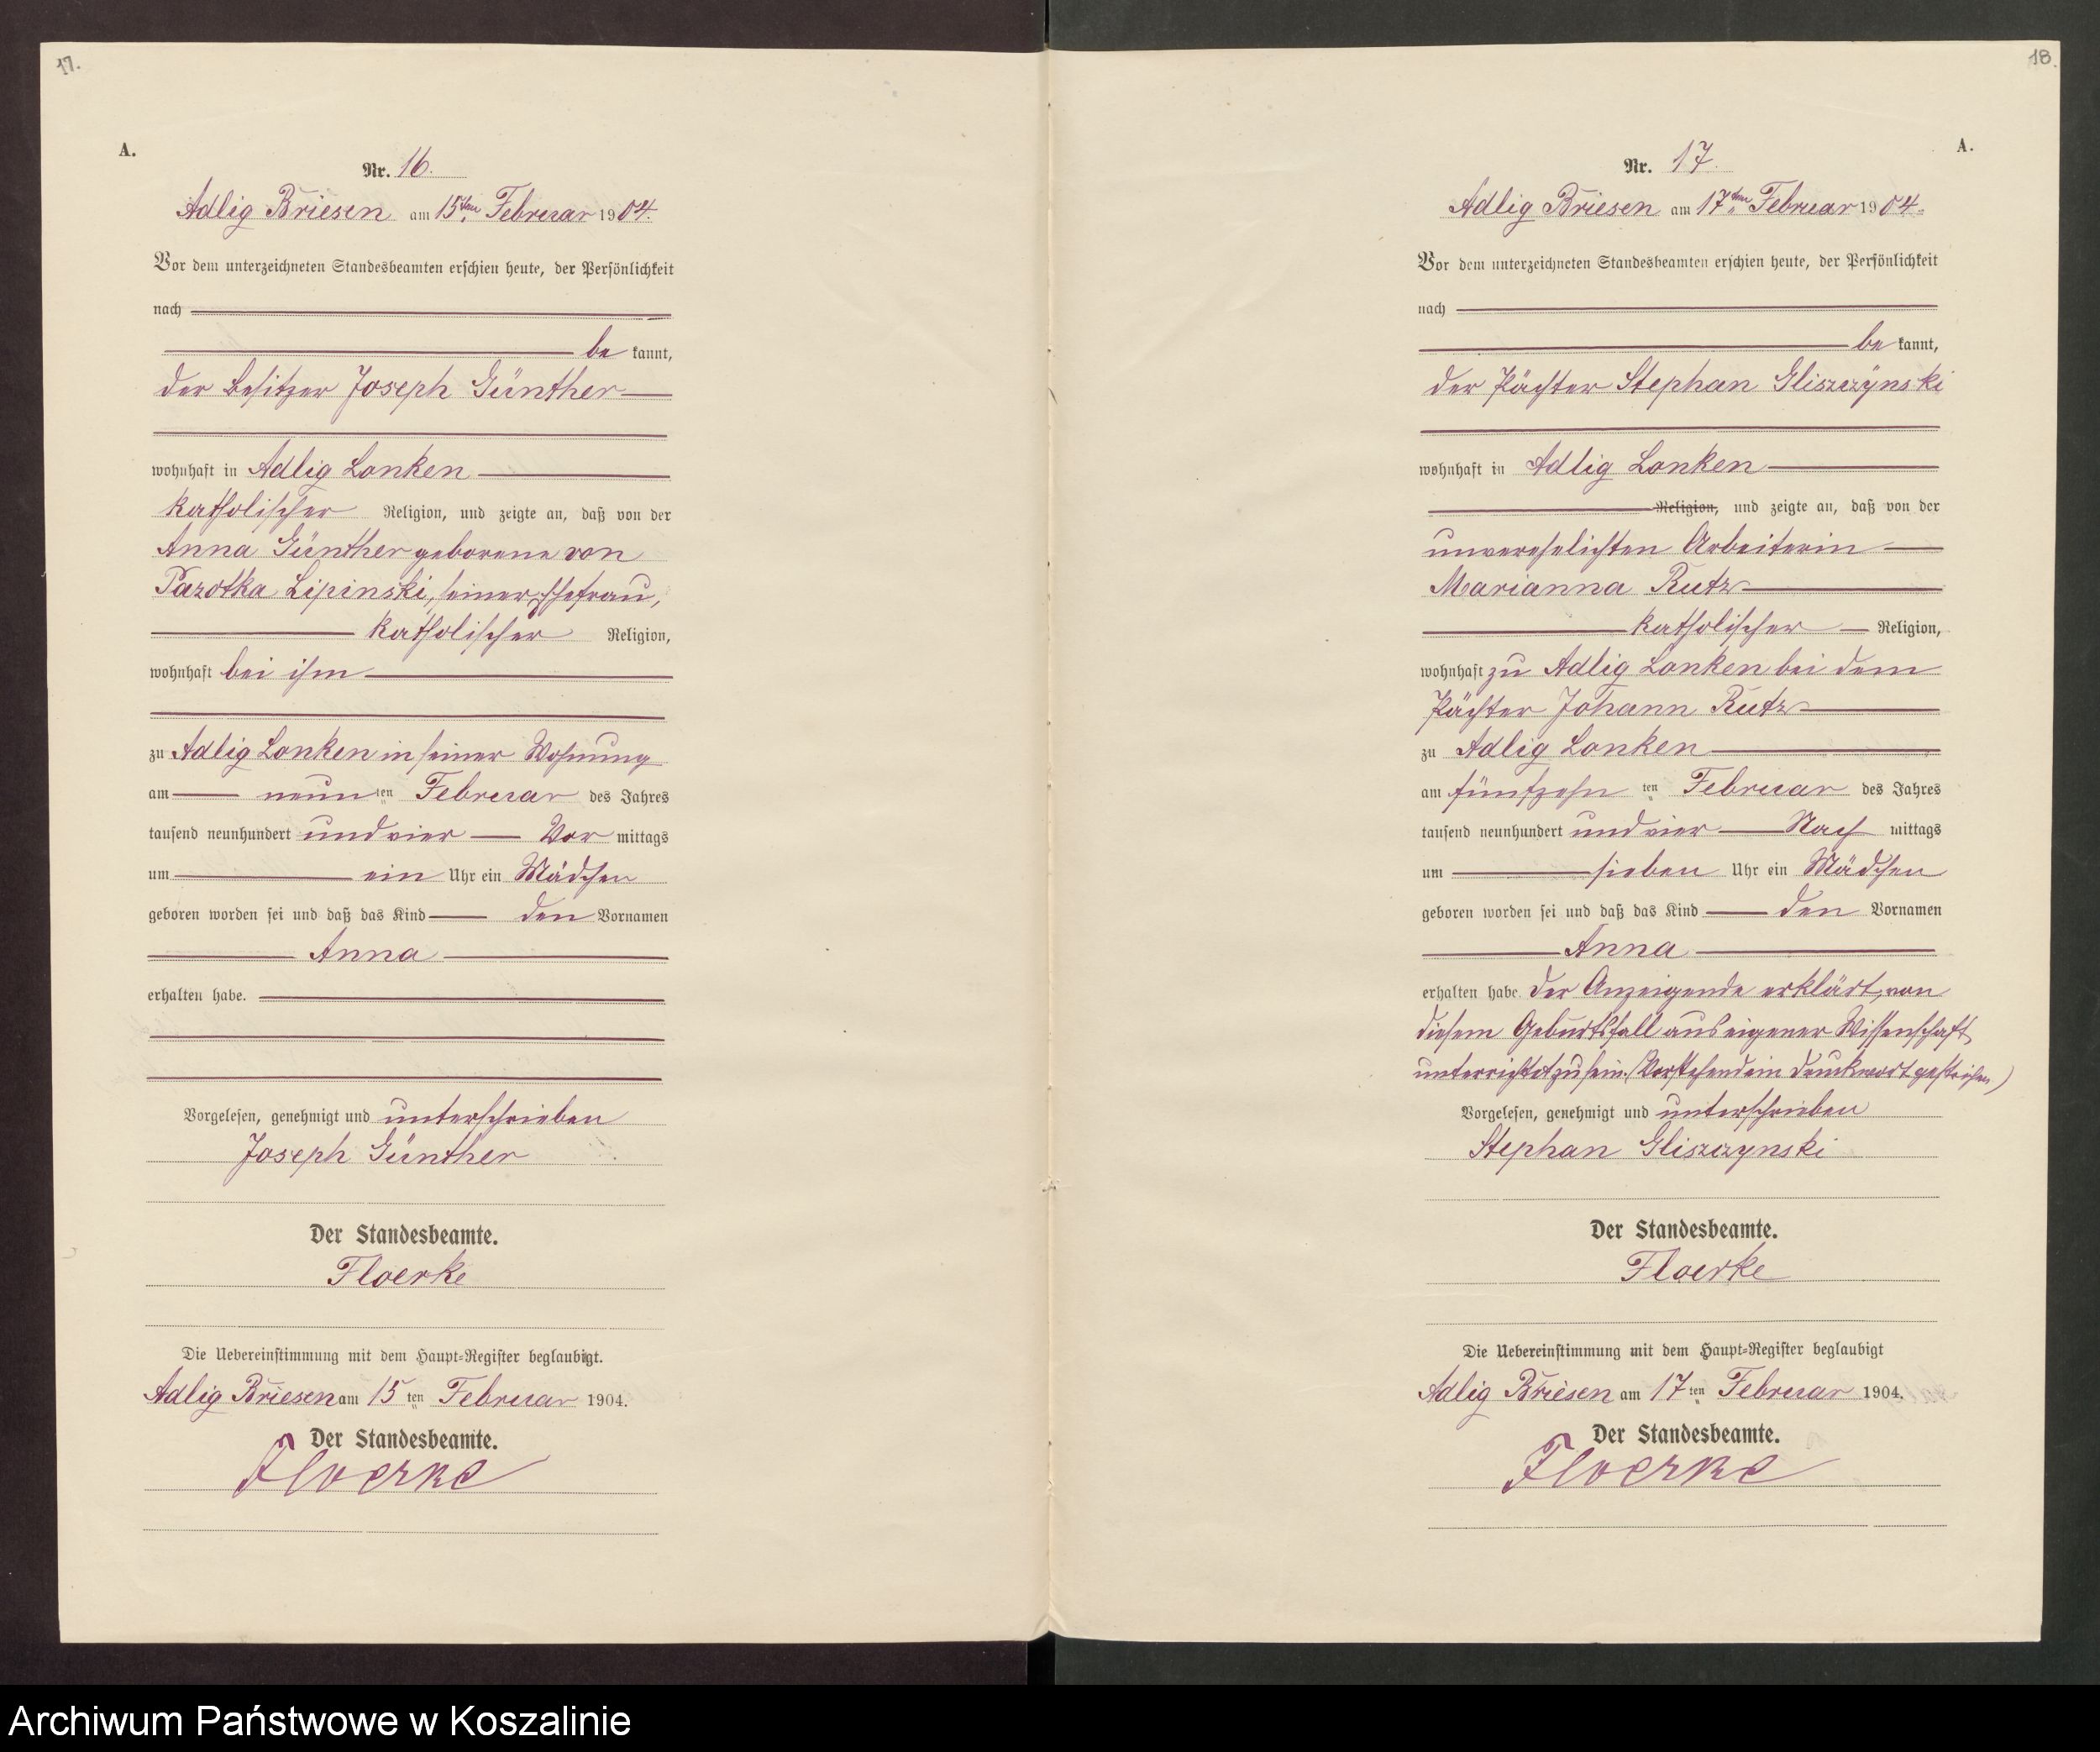 17.
A.
Nr. 16.
Adlig Briesen am 15ten Februar 1904.
Vor dem unterzeichneten Standesbeamten erschien heute, der Persönlichkeit
nach
be kannt,
der Besitzer Joseph Günther
wohnhaft in Adlig Lonken
katholischer Religion, und zeigte an, daß von der
Anna Günther geborene von
Pazotka Lipinski, seiner Ehefrau,
katholischer Religion,
wohnhaft bei ihm
zu Adlig Lonken in seiner Wohnung
am neun ten Februar des Jahres
tausend neunhundert und vier Vor mittags
um ein Uhr ein Mädchen
geboren worden sei und daß das Kind den Vornamen
Anna
erhalten habe.
Vorgelesen, genehmigt und unterschrieben
Joseph Günther
Der Standesbeamte.
Floerke
Die Uebereinstimmung mit dem Haupt-Register beglaubigt.
Adlig Briesen am 15 ten Februar 1904.
Der Standesbeamte.
Floerke
18.
A.
Nr. 17.
Adlig Briesen am 17ten Februar 1904.
Vor dem unterzeichneten Standesbeamten erschien heute, der Persönlichkeit
nach
be kannt,
der Pächter Stephan Gliszczynski
wohnhaft in Adlig Lonken
Religion, und zeigte an, daß von der
unverehelichten Arbeiterin
Marianna Rutz
katholischer Religion,
wohnhaft zu Adlig Lonken bei dem
Pächter Johann Rutz
zu Adlig Lonken
am fünfzehn ten Februar des Jahres
tausend neunhundert und vier Nach mittags
um sieben Uhr ein Mädchen
geboren worden sei und daß das Kind den Vornamen
Anna
erhalten habe. Der Anzeigende erklärt, von
diesem Geburtsfall aus eigener Wissenschaft
unterrichtet zu sein. (Vorstehend ein Druckwort gestrichen)
Vorgelesen, genehmigt und unterschrieben
Stephan Gliszczynski
Der Standesbeamte.
Floerke
Die Uebereinstimmung mit dem Haupt-Register beglaubigt
Adlig Briesen am 17 ten Februar 1904.
Der Standesbeamte.
Floerke
Archiwum Państwowe w Koszalinie